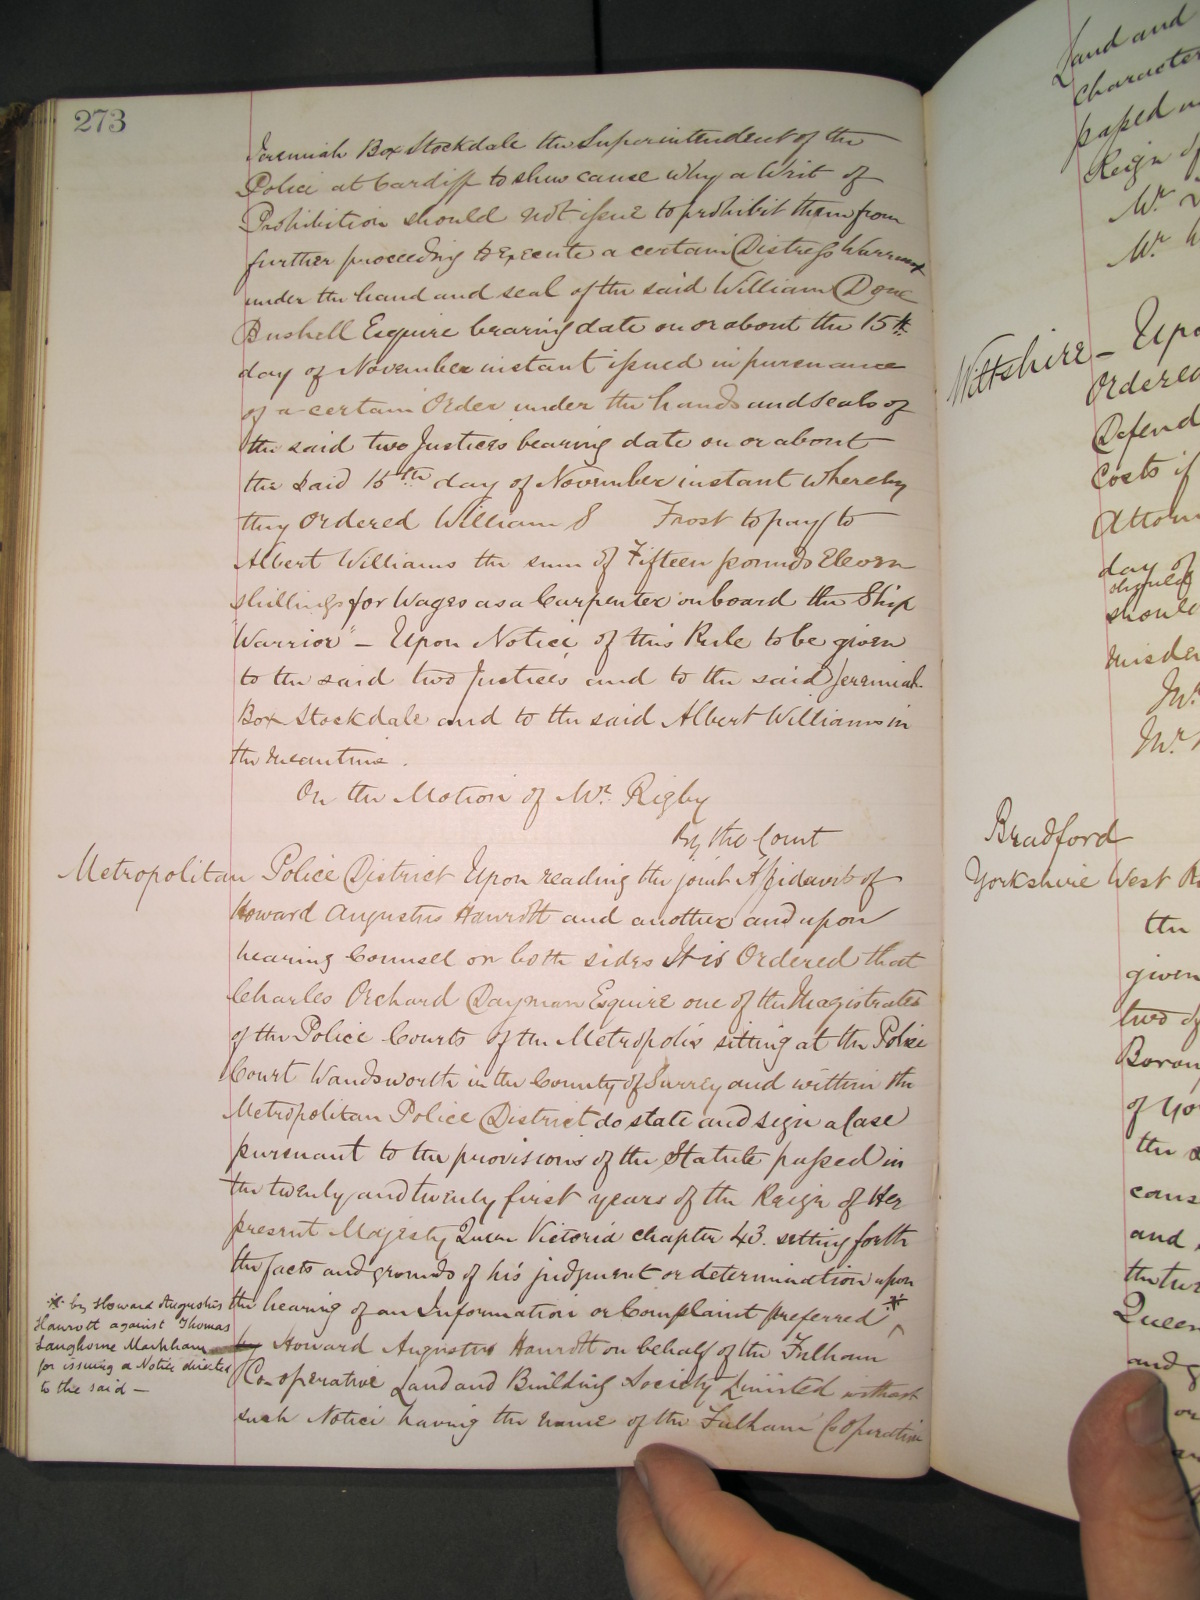 273
Jeremiah Box Stockdale the Superintendent of the
Police at Cardiff to shew cause why a Writ of
Prohibition should not issue to prohibit them from
further proceeding to execute a certain Distress Warrant
under the hand and seal of the said William Done
Bushell Esquire bearing date on or about the 15th
day of November instant issued in pursuance
of a certain Order under the hands and seals of
the said two Justices bearing date on or about
the said 15th day of November instant whereby
they Ordered William S Frost to pay to
Albert Williams the sum of Fifteen pounds Eleven
shillings for Wages as a Carpenter on board the Ship
Warrior" – Upon Notice of this Rule to be given
to the said two Justices and to the said Jeremiah
Box Stockdale and to the said Albert Williams in
the meantime.
On the Motion of Mr. Rigby
By the Court
Metropolitan Police District Upon reading the joint Affidavit of
Howard Augustus Hanrott and another and upon
hearing Counsel on both sides It is Ordered that
Charles Orchard Dayman Esquire one of the Magistrates
of the Police Courts of the Metropolis sitting at the Police
Court Wandsworth in the County of Surrey and within the
Metropolitan Police District do state and sign a Case
pursuant to the provisions of the Statute passed in
the twenty and twenty first years of the Reign of Her
present Majesty Queen Victoria chapter 43. setting forth
the facts and grounds of his judgment or determination upon
the hearing of an Information or Complaint preferred *
by Howard Augustus Hanrott on behalf of the Fulham
Co-operative Land and Building Society Limited without
such Notice having the name of the Fulham Cooperative
* by Howard Augustus
Hanrott against Thomas
Langhorne Markham
for issuing a Notice directed
to the said –
Land and
Character
passed in
Reign of
Mr.
Mr.
Wiltshire – Upo
Ordered
Defend
Costs if
Attorn
day of
should
Misde
Mr.
Mr.
Bradford
Yorkshire West R
the
given
two of
Borou
of Yo
the
caus
and
the tw
Queen
and g